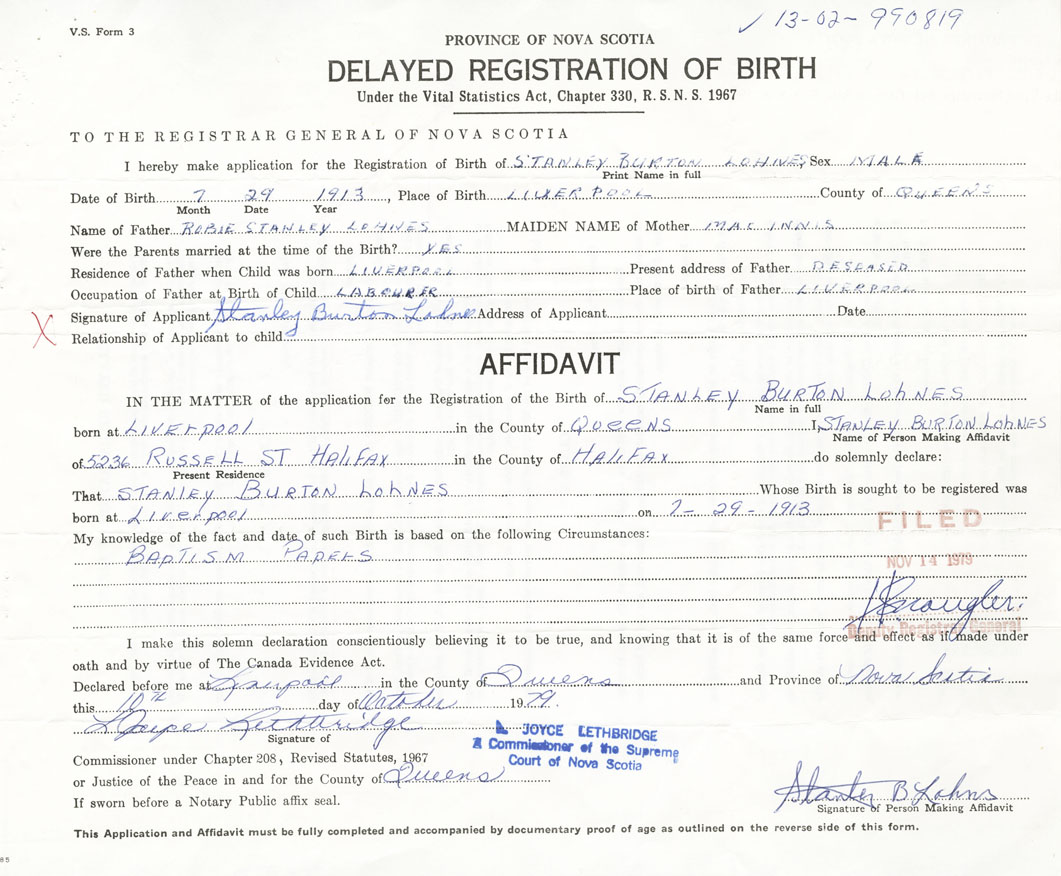 V.S. Form 3
✓ 13-02-990819
PROVINCE OF NOVA SCOTIA
DELAYED REGISTRATION OF BIRTH
Under the Vital Statistics Act, Chapter 330, R.S.N.S. 1967
TO THE REGISTRAR GENERAL OF NOVA SCOTIA
I hereby make application for the Registration of Birth of STANLEY BURTON LOHNES, Sex MALE
Print Name in full
Date of Birth 7 29 1913, Place of Birth LIVERPOOL County of QUEENS
Month Date Year
Name of Father ROBIE STANLEY LOHNES MAIDEN NAME of Mother MAC INNIS
Were the Parents married at the time of the Birth? YES
Residence of Father when Child was born LIVERPOOL Present address of Father DESEASED
Occupation of Father at Birth of Child LABOURER Place of birth of Father LIVERPOOL
X Signature of Applicant Stanley Burton Lohnes Address of Applicant Date
Relationship of Applicant to child
AFFIDAVIT
IN THE MATTER of the application for the Registration of the Birth of STANLEY BURTON LOHNES
Name in full
born at LIVERPOOL in the County of QUEENS I, STANLEY BURTON LOHNES
Name of Person Making Affidavit
of 5236 RUSSELL ST HALIFAX in the County of HALIFAX do solemnly declare:
Present Residence
That STANLEY BURTON LOHNES Whose Birth is sought to be registered was
born at Liverpool on 7-29-1913
FILED
My knowledge of the fact and date of such Birth is based on the following Circumstances:
BAPTISM PAPERS
NOV 14 1979
Deputy Registrar General
I make this solemn declaration conscientiously believing it to be true, and knowing that it is of the same force and effect as if made under
oath and by virtue of The Canada Evidence Act.
Declared before me at Liverpool in the County of Queens and Province of Nova Scotia
this 10th day of October 1979.
L Joyce Lethbridge
Signature of
L. JOYCE LETHBRIDGE
A Commissioner of the Supreme
Court of Nova Scotia
Commissioner under Chapter 208, Revised Statutes, 1967
or Justice of the Peace in and for the County of Queens
If sworn before a Notary Public affix seal.
Stanley B Lohnes
Signature of Person Making Affidavit
This Application and Affidavit must be fully completed and accompanied by documentary proof of age as outlined on the reverse side of this form.
85